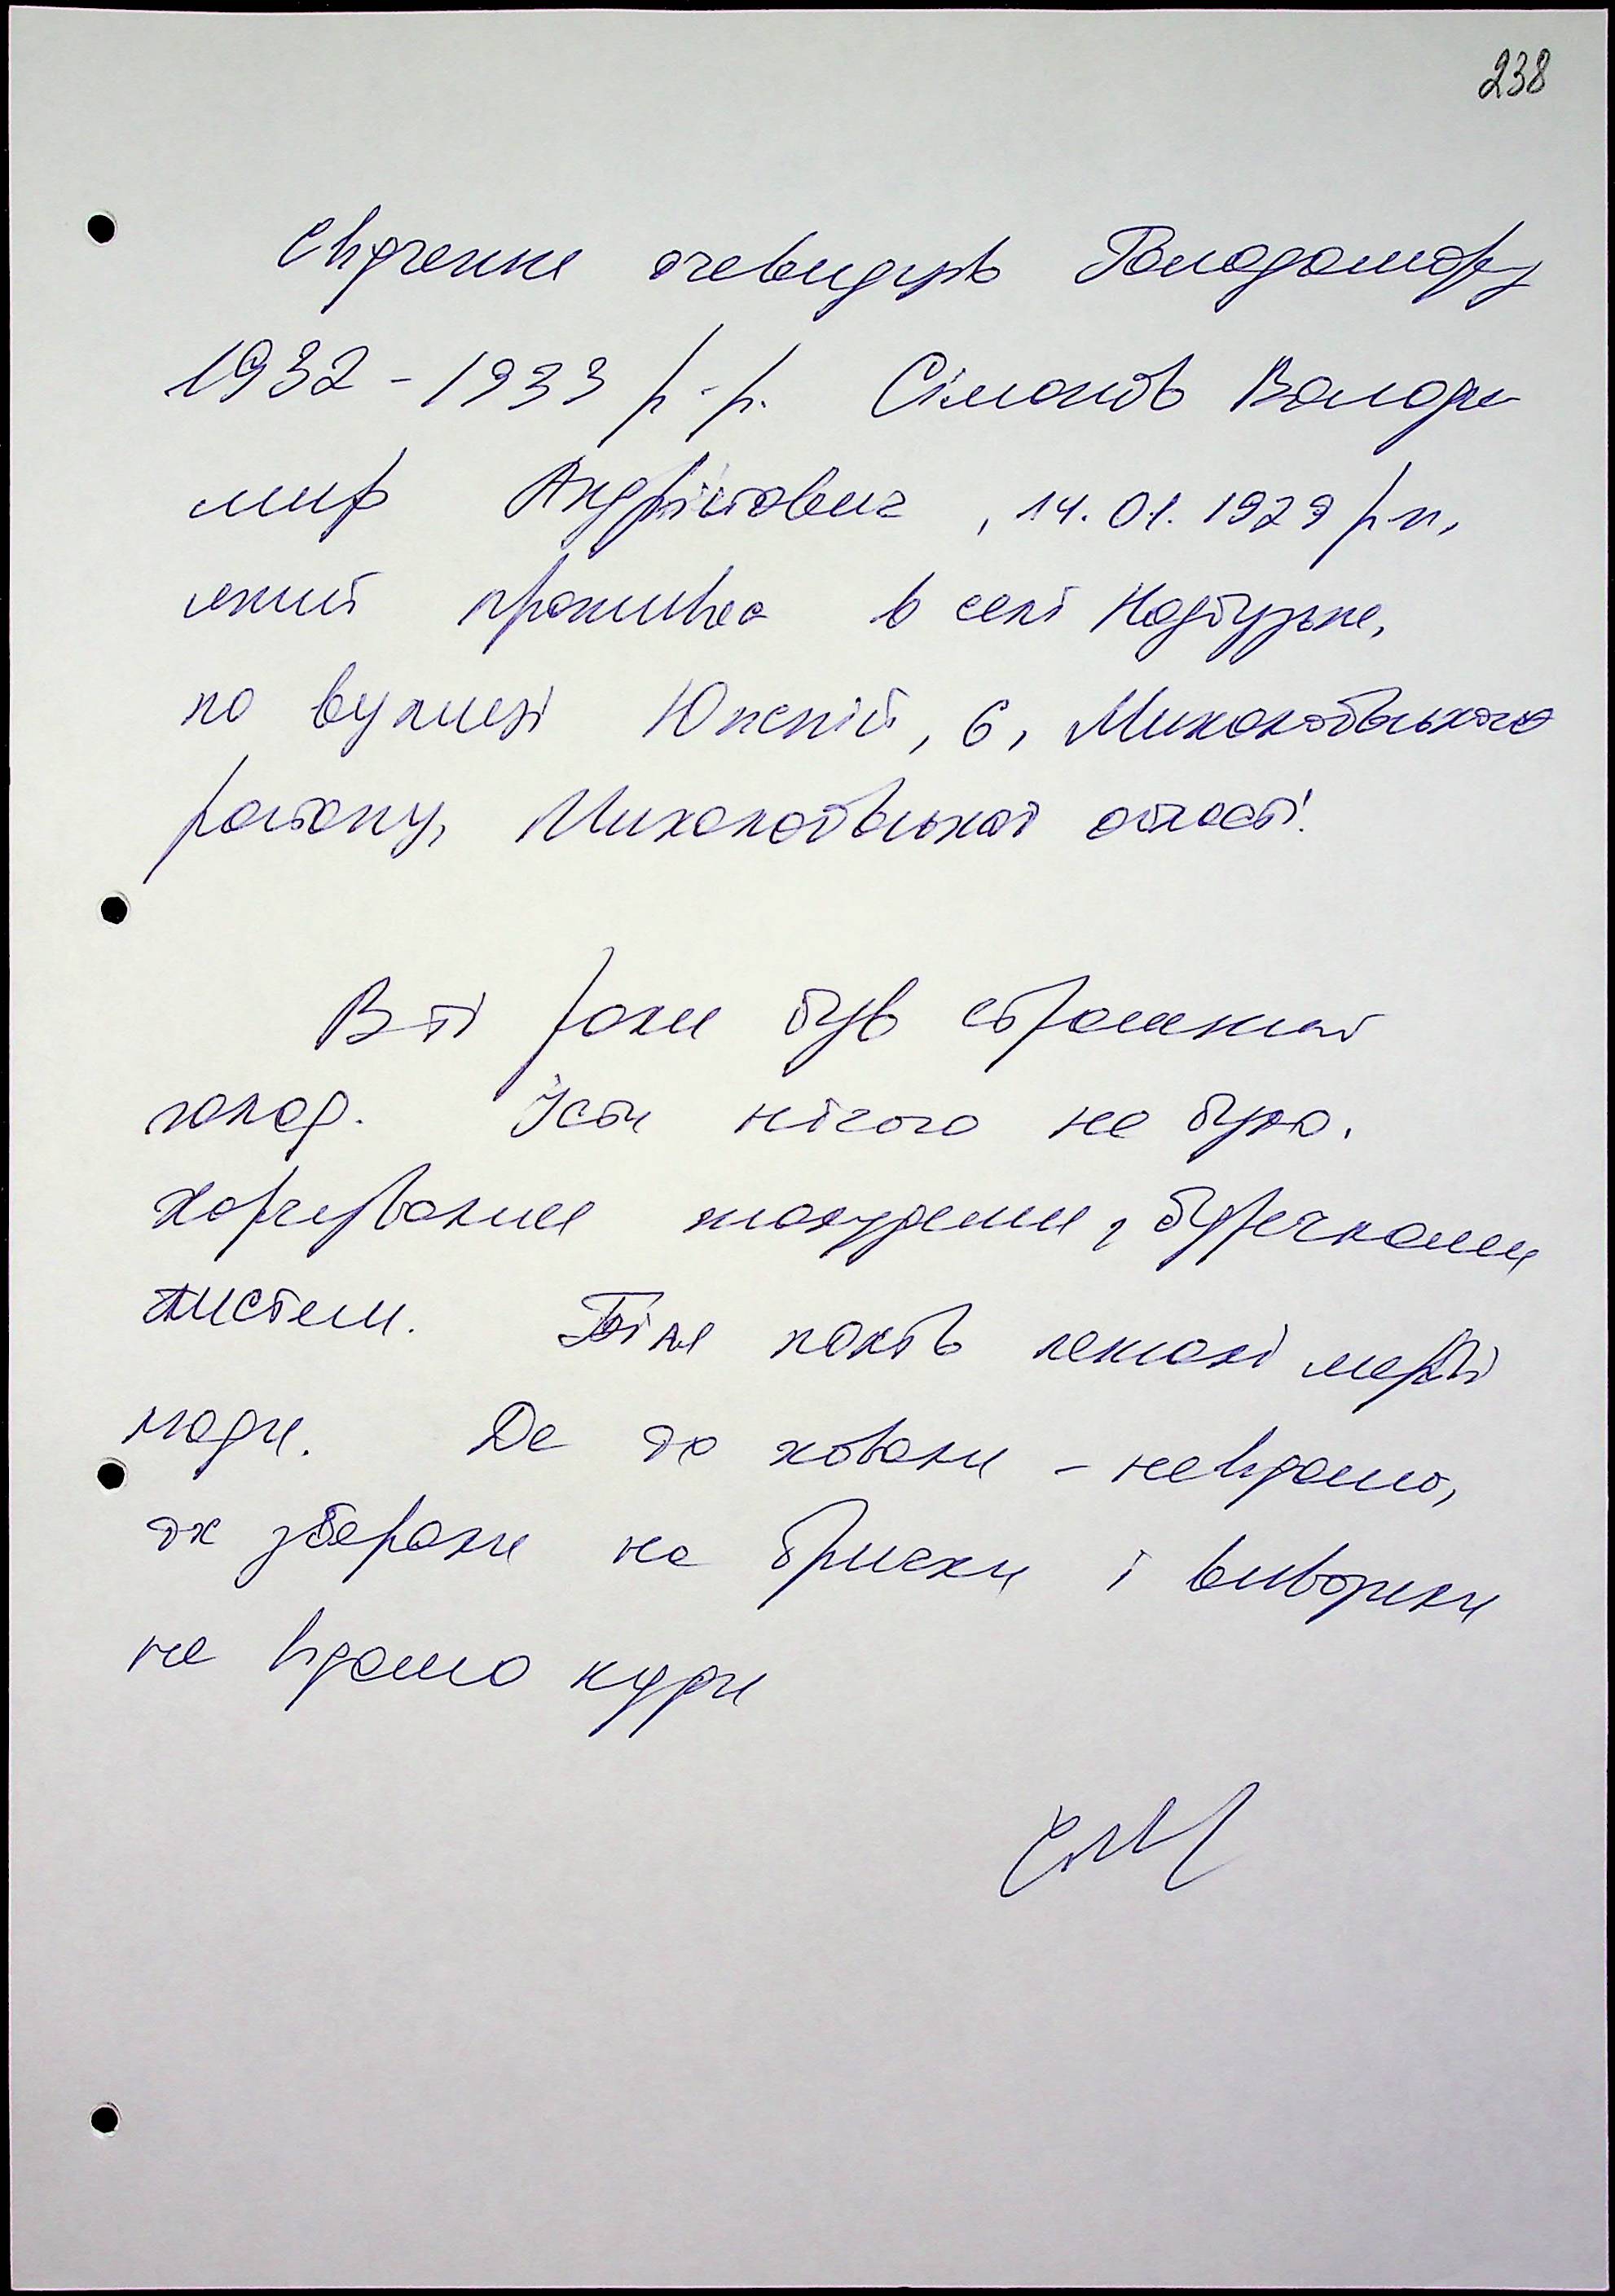 238
Свідчення очевидців Голодомору
1932-1933 р.р. Сімонов Володи
мир Андрійович, 14.01.1929 р.н,
який проживає в селі Надбузьке,
по вулиці Южній, 6, Миколаївського
району, Миколаївської області.
В ті роки був страшний
голод. Їсти нічого не було.
Харчувались макухами, бурячками
листям. Біля полів лежали мертві
люди. Де їх ховали - невідомо,
їх збирали на брички і вивозили
не відомо куди